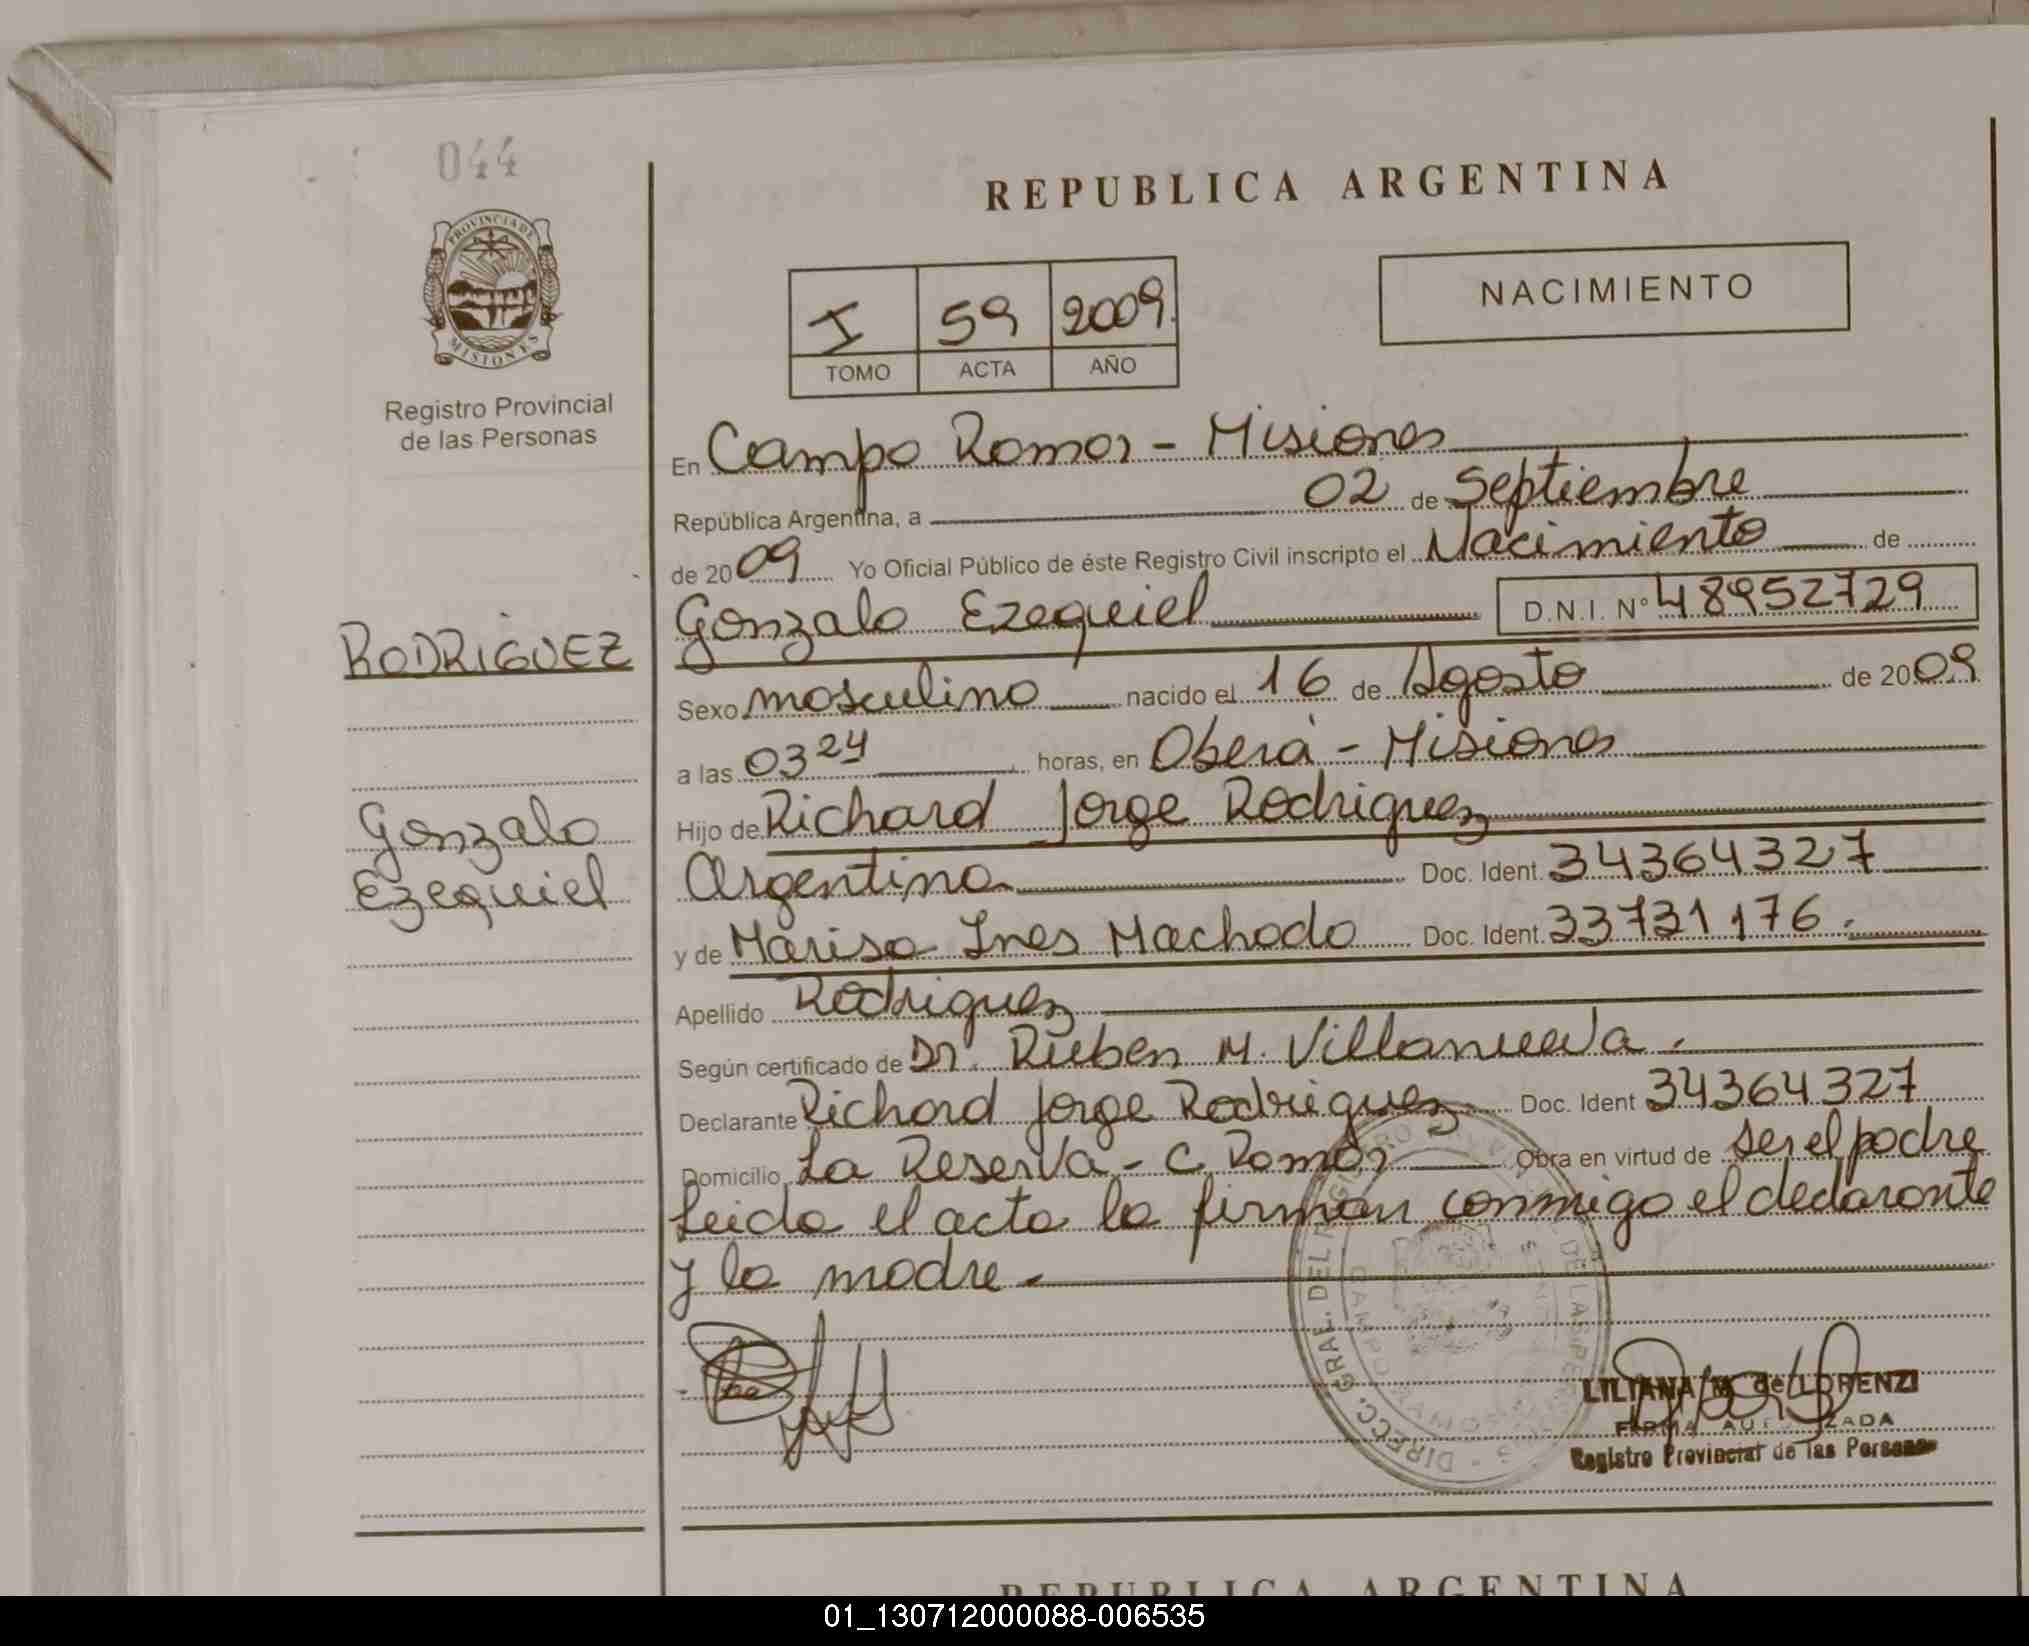 044
REPUBLICA ARGENTINA
PROVINCIA DE
MISIONES
Registro Provincial
de las Personas
I 59 2009.
TOMO ACTA AÑO
NACIMIENTO
En Campo Ramos - Misiones
República Argentina, a 02 de Septiembre
de 2009 Yo Oficial Público de éste Registro Civil inscripto el Nacimiento de
Gonzalo Ezequiel D.N.I. Nº 48952729
RODRIGUEZ
Sexo masculino nacido el 16 de Agosto de 2009
a las 03 24 horas, en Oberá - Misiones
Gonzalo
Ezequiel
Hijo de Richard Jorge Rodriguez
Argentina Doc. Ident. 34364327
y de Marisa Ines Machado Doc. Ident. 33731176.
Apellido Rodriguez
Según certificado de Dr. Ruben M. Villanueva.
Declarante Richard Jorge Rodriguez Doc. Ident 34364327
Domicilio La Reserva - C. Ramos Obra en virtud de ser el padre
Leida el acta la firman conmigo el declarante
y la madre -
DIRECC. GRAL. DEL REGISTRO DE LAS
LILIANA M. de LORENZI
FIRMA AUTORIZADA
Registro Provincial de las Personas
REPUBLICA ARGENTINA
01_130712000088-006535